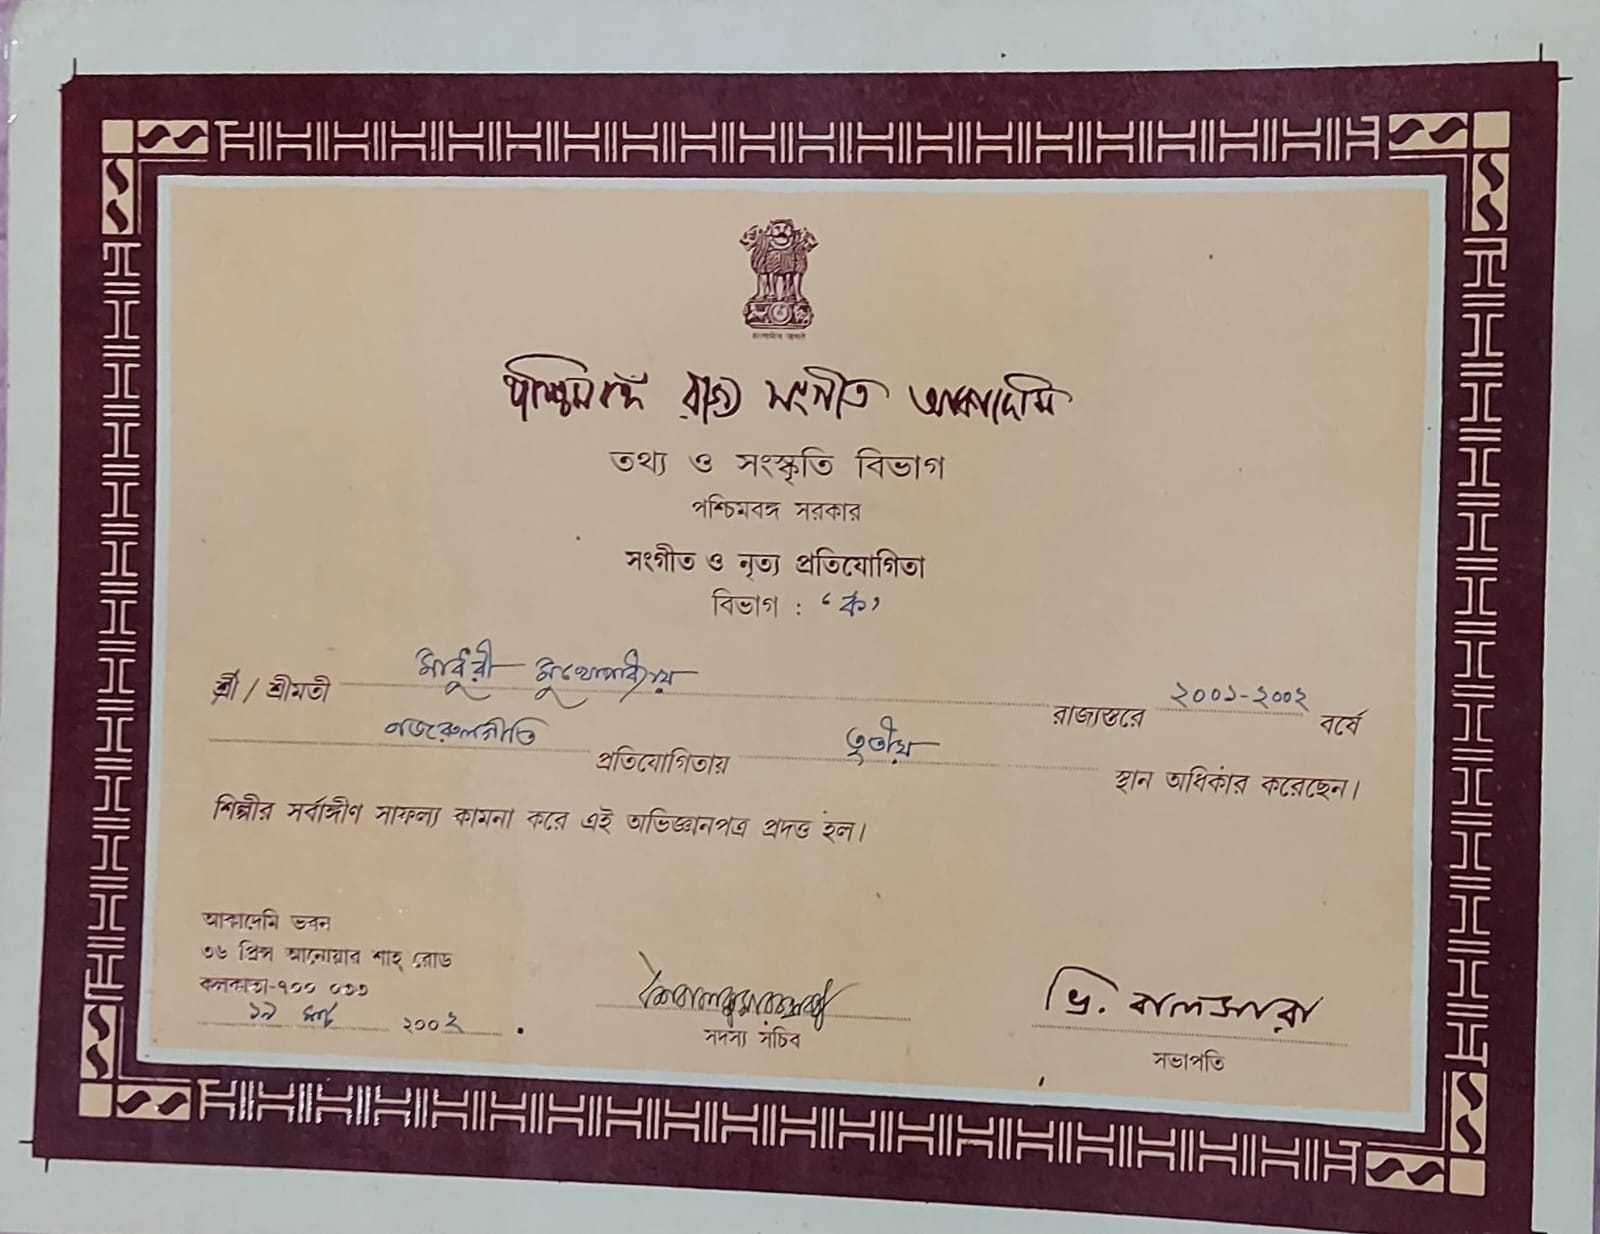 পশ্চিমবঙ্গ রাজ্য সংগীত আকাদেমি
তথ্য ও সংস্কৃতি বিভাগ
পশ্চিমবঙ্গ সরকার
সংগীত ও নৃত্য প্রতিযোগিতা
বিভাগ : ‘ক’
শ্রী / শ্রীমতী মাধুরী মুখোপাধ্যায় রাজ্যস্তরে ২০০১-২০০২ বর্ষে
নজরুলগীতি প্রতিযোগিতায় তৃতীয় স্থান অধিকার করেছেন।
শিল্পীর সর্বাঙ্গীণ সাফল্য কামনা করে এই অভিজ্ঞানপত্র প্রদত্ত হল।
আকাদেমি ভবন
৩৬ প্রিন্স আনোয়ার শাহ্ রোড
কলকাতা-৭০০ ০৩৩
১৯ মার্চ ২০০২
সদস্য সচিব
ভি. বালসারা
সভাপতি